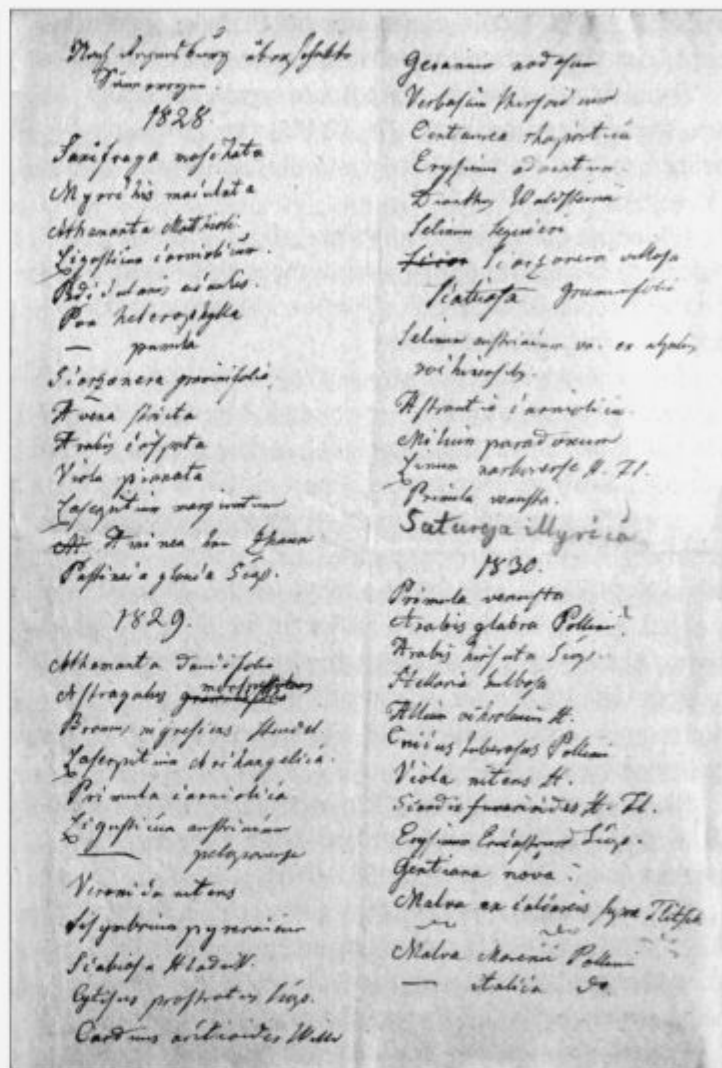 Nach Regensburg überschickte
Sämereyen
1828
Saxifraga moschata
Myrrhis maculata
Athamanta Mathioli
Ligusticum carniolicum
Pedicularis acaulis
Poa heterophylla
— pumila
Scorzonera graminifolia
Avena stricta
Arabis
Viola pinnata
Laserpitium marginatum
Pastinaca Scop.
1829.
Athamanta
Astragalus
Bromus nigrescens
Laserpitium Archangelica
Primula carniolica
Ligusticum austriacum
— peloponense
Veronica nitens
Sisymbrium pyrenaicum
Scabiosa Hladnik.
Cytisus prostratus Scop.
Carduus
Geranium nodosum
Verbascum
Centaurea rhapontica
Erysimum
Dianthus Waldsteinii
Selinum Seguieri
Scorzonera villosa
Scabiosa graminifolia
Selinum austriacum
Astrantia carniolica
Milium paradoxum
Linum narbonense H. Fl.
Primula venusta.
Satureja Illyrica
1830.
Primula venusta
Arabis glabra Pollini
Arabis hirsuta Scop.
Stellaria bulbosa
Allium H.
Cnicus tuberosus Pollini
Viola nitens H.
H. Fl.
Erysimum Scop.
Gentiana nova
Malva ex
Malva Morenii Pollini
— italica do